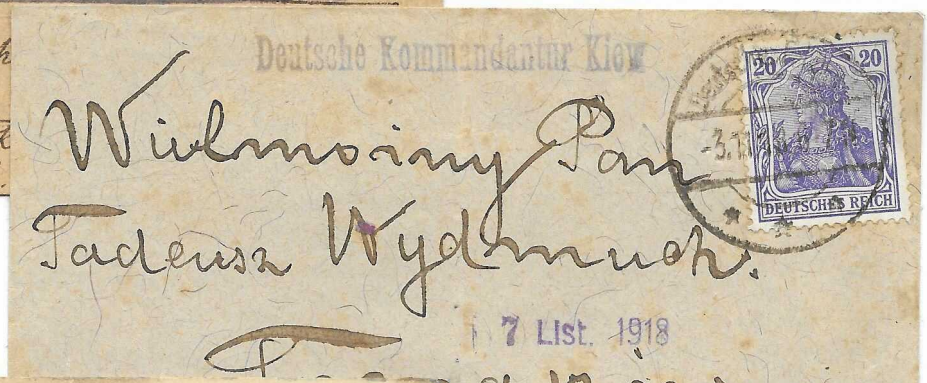 Deutsche Kommandantur Kiew
20 20
-3.11.
DEUTSCHES REICH
Wielmożny Pan
Tadeusz Wydmuch.
7 List. 1918